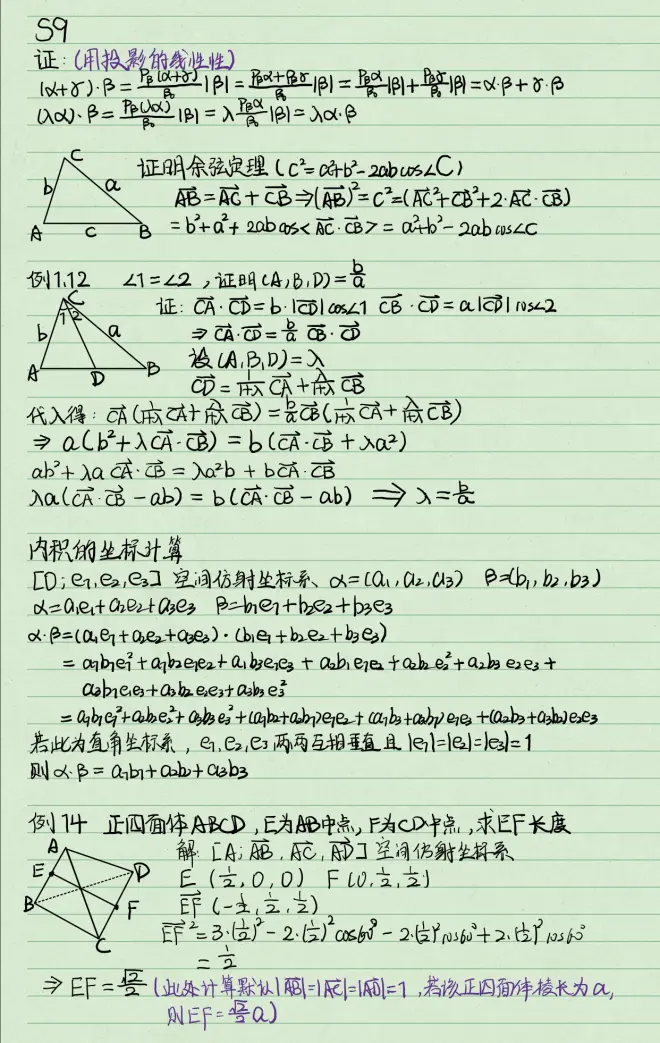 S9
证:(用投影的线性性)
(α+γ)·β = P_β(α+γ)/β₀ |β| = (P_βα+P_βγ)/β₀ |β| = P_βα/β₀ |β| + P_βγ/β₀ |β| = α·β + γ·β
(λα)·β = P_β(λα)/β₀ |β| = λ P_βα/β₀ |β| = λα·β
C
b a
A c B
证明余弦定理 (c²=a²+b²-2ab cos∠C)
AB→ = AC→ + CB→ ⇒ (AB→)² = c² = (AC→² + CB→² + 2·AC→·CB→)
= b²+a²+2ab cos<AC→·CB→> = a²+b²-2ab cos∠C
例1.12 ∠1=∠2,证明(A,B,D)=b/a
C
1 2
b a
A D B
证: CA→·CD→ = b·|CD→|cos∠1 CB→·CD→ = a|CD→|cos∠2
⇒ CA→·CD→ = b/a CB→·CD→
设(A,B,D)=λ
CD→ = 1/(1+λ) CA→ + λ/(1+λ) CB→
代入得: CA→(1/(1+λ) CA→ + λ/(1+λ) CB→) = b/a CB→(1/(1+λ) CA→ + λ/(1+λ) CB→)
⇒ a(b²+λCA→·CB→) = b(CA→·CB→+λa²)
ab²+λa CA→·CB→ = λa²b + bCA→·CB→
λa(CA→·CB→-ab) = b(CA→·CB→-ab) ⟹ λ = b/a
内积的坐标计算
[O;e₁,e₂,e₃] 空间仿射坐标系、α=(a₁,a₂,a₃) β=(b₁,b₂,b₃)
α=a₁e₁+a₂e₂+a₃e₃ β=b₁e₁+b₂e₂+b₃e₃
α·β=(a₁e₁+a₂e₂+a₃e₃)·(b₁e₁+b₂e₂+b₃e₃)
= a₁b₁e₁²+a₁b₂e₁e₂+a₁b₃e₁e₃+a₂b₁e₁e₂+a₂b₂e₂²+a₂b₃e₂e₃+
a₃b₁e₁e₃+a₃b₂e₂e₃+a₃b₃e₃²
= a₁b₁e₁²+a₂b₂e₂²+a₃b₃e₃²+(a₁b₂+a₂b₁)e₁e₂+(a₁b₃+a₃b₁)e₁e₃+(a₂b₃+a₃b₂)e₂e₃
若此为直角坐标系,e₁,e₂,e₃两两互相垂直且|e₁|=|e₂|=|e₃|=1
则α·β=a₁b₁+a₂b₂+a₃b₃
例14 正四面体ABCD,E为AB中点,F为CD中点,求EF长度
A
E D
B F
C
解:[A;AB→,AC→,AD→]空间仿射坐标系
E (½,0,0) F(0,½,½)
EF→ (-½,½,½)
EF→² = 3·(½)²-2·(½)²cos60°-2·(½)²cos60°+2·(½)²cos60°
= ½
⇒ EF=√2/2 (此处计算默认|AB→|=|AC→|=|AD→|=1,若该正四面体棱长为a,
则EF=√2/2 a)